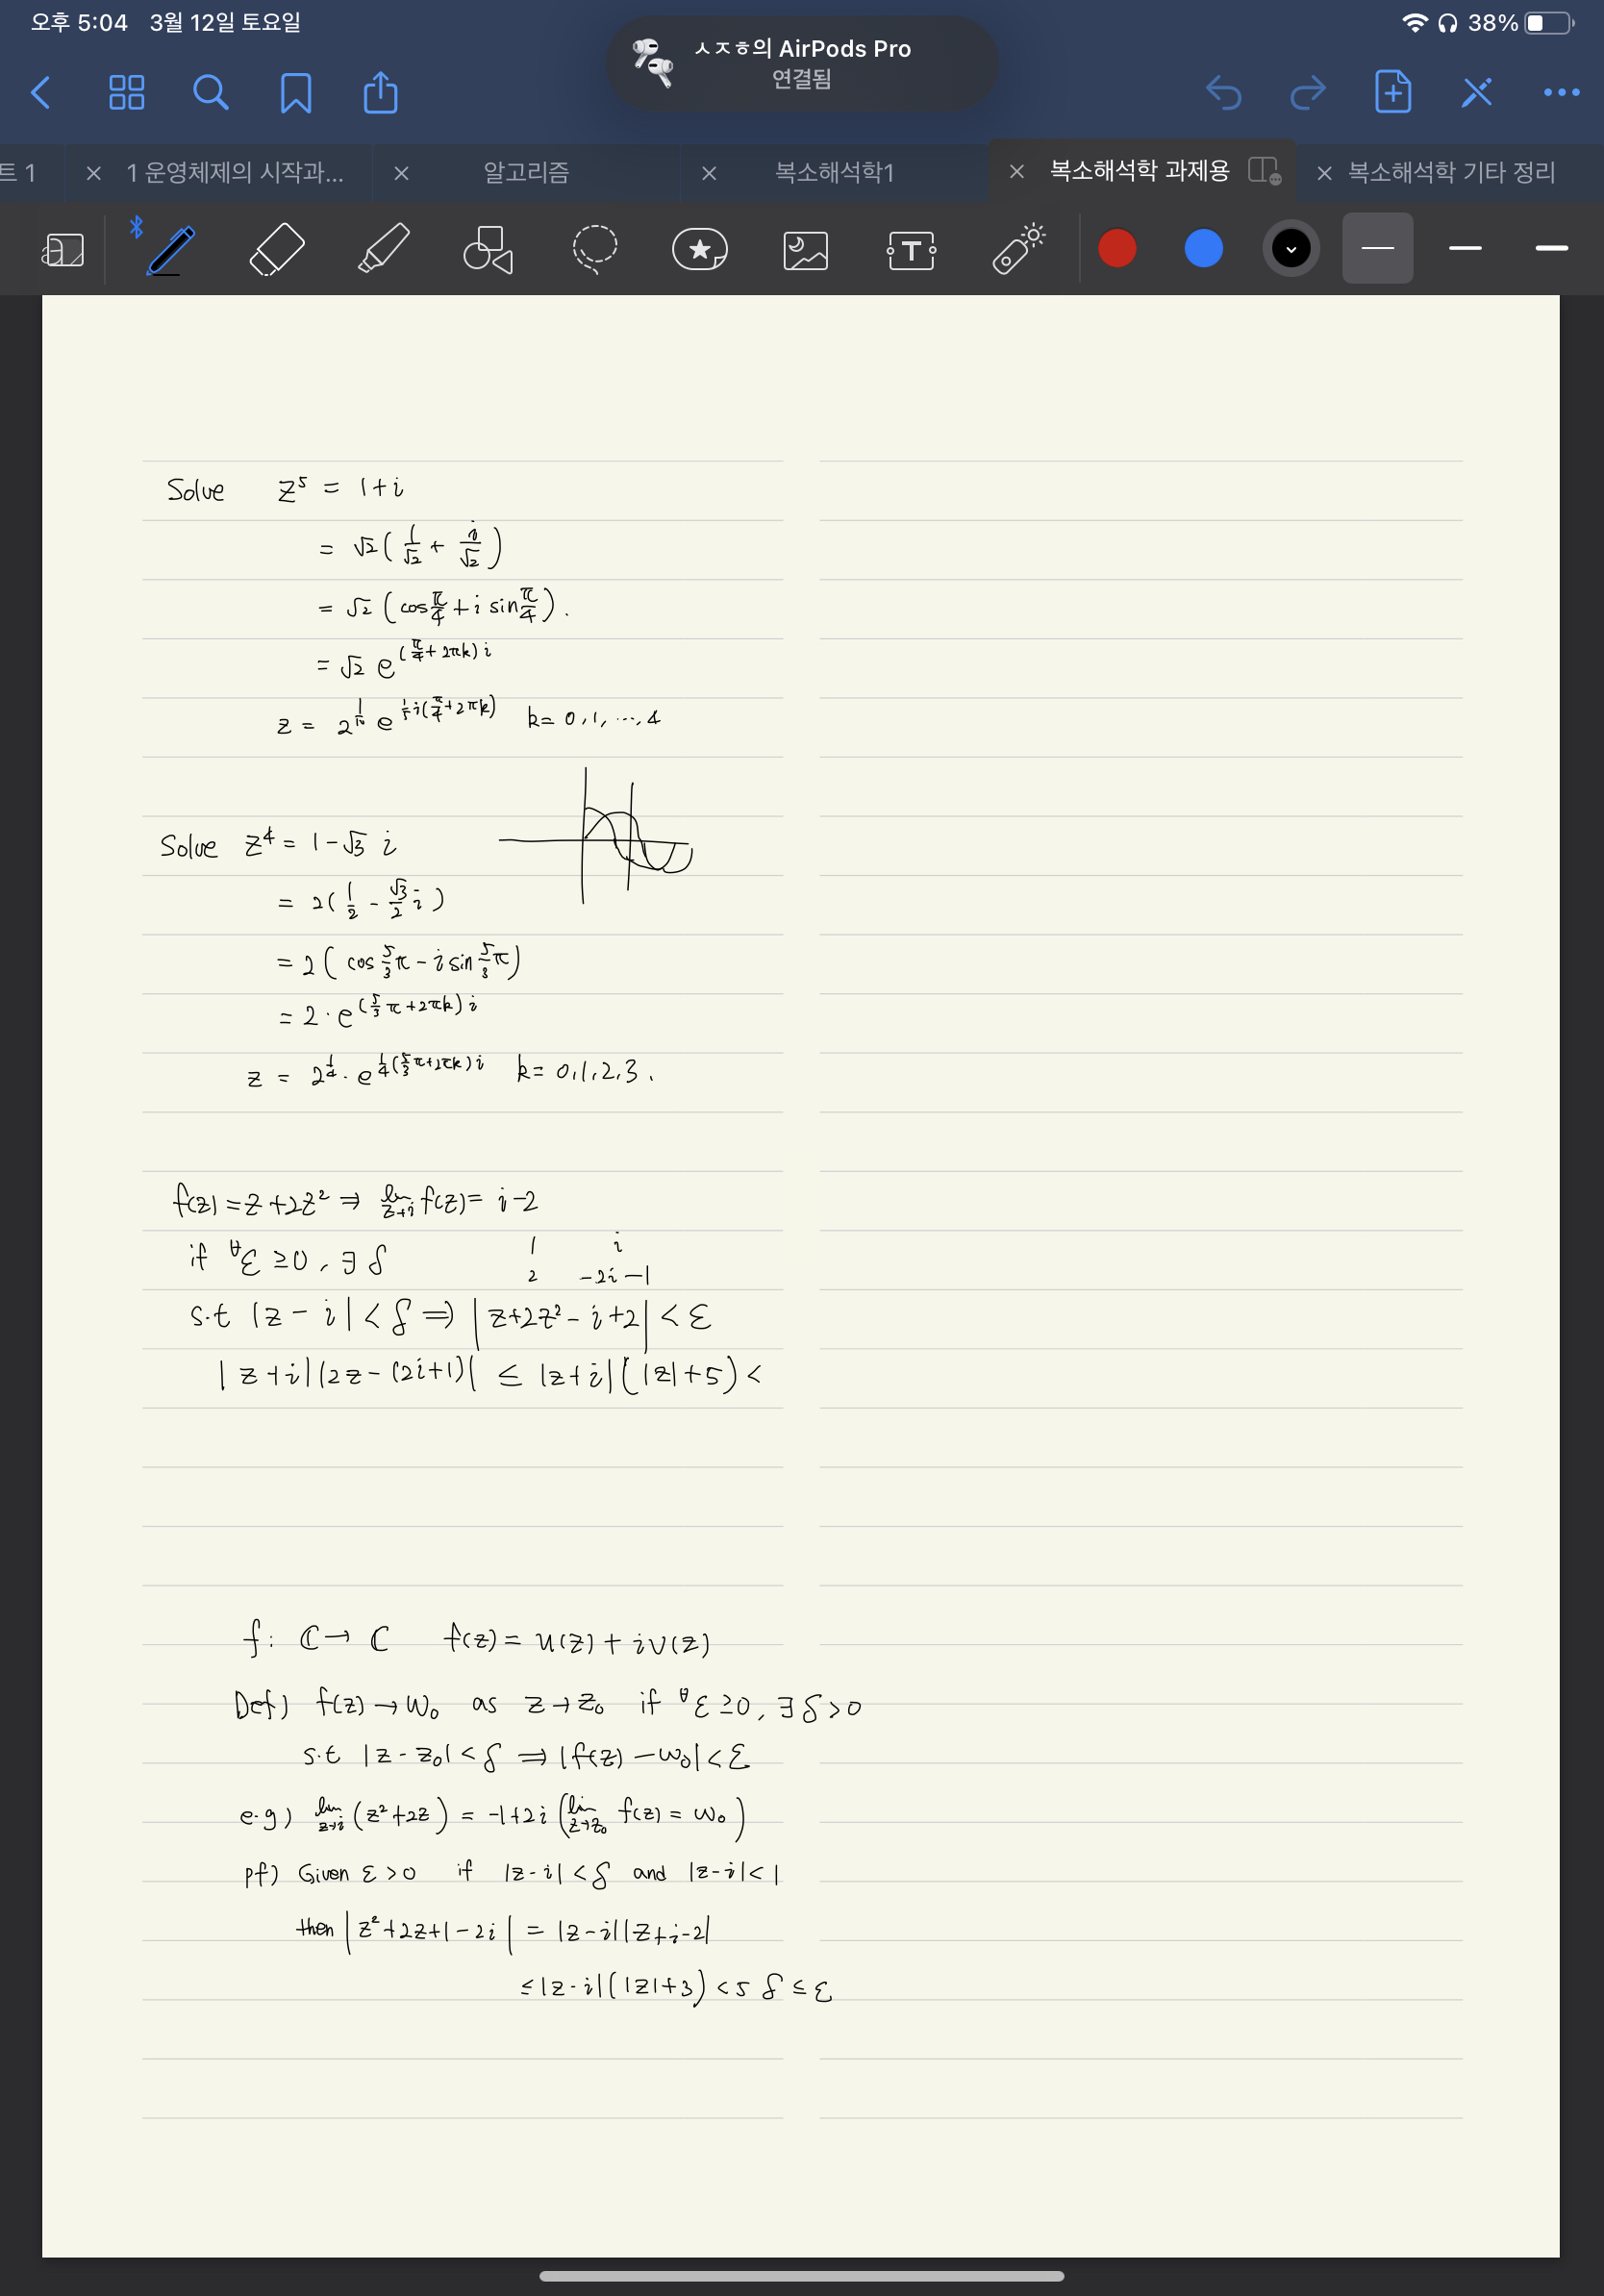 오후 5:04 3월 12일 토요일
ㅅㅈㅎ의 AirPods Pro
연결됨
38%
트 1
1 운영체제의 시작과...
알고리즘
복소해석학1
복소해석학 과제용
복소해석학 기타 정리
Solve z⁵ = 1+i
= √2(1/√2 + i/√2)
= √2(cos π/4 + i sin π/4).
= √2 e^((π/4 + 2πk)i)
z = 2^(1/10) e^(1/5 i(π/4+2πk)) k= 0,1, ..., 4
Solve z⁴ = 1-√3 i
= 2(1/2 - √3/2 i)
= 2(cos 5/3 π - i sin 5/3 π)
= 2 · e^((5/3 π + 2πk)i)
z = 2^(1/4) · e^(1/4(5/3 π+2πk)i) k= 0,1,2,3.
f(z) = z+2z² ⇒ lim z→i f(z) = i-2
if ∀ε ≥0, ∃ δ
1 i
2 -2i-1
s.t |z - i| < δ ⇒ |z+2z² - i+2| < ε
|z+i||2z-(2i+1)| ≤ |z+i|(|z|+5) <
f: ℂ → ℂ f(z) = u(z) + iv(z)
Def) f(z) → w₀ as z → z₀ if ∀ε ≥0, ∃δ >0
s.t |z - z₀| < δ ⇒ |f(z) - w₀| < ε
e.g) lim z→i (z²+2z) = -1+2i (lim z→z₀ f(z) = w₀)
pf) Given ε > 0 if |z-i| < δ and |z-i| < 1
then |z²+2z+1-2i| = |z-i||z+i-2|
≤ |z-i|(|z|+3) < 5 δ ≤ ε